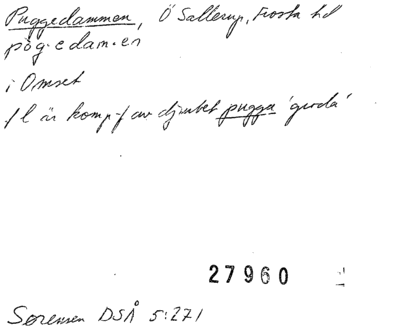 Puggedammen, Ö Sallerup, Frosta hd
pög·edam·en
i Omset
fl är komp-f av djurbet pugga 'groda'
27960
Sørensen DSÅ 5:271